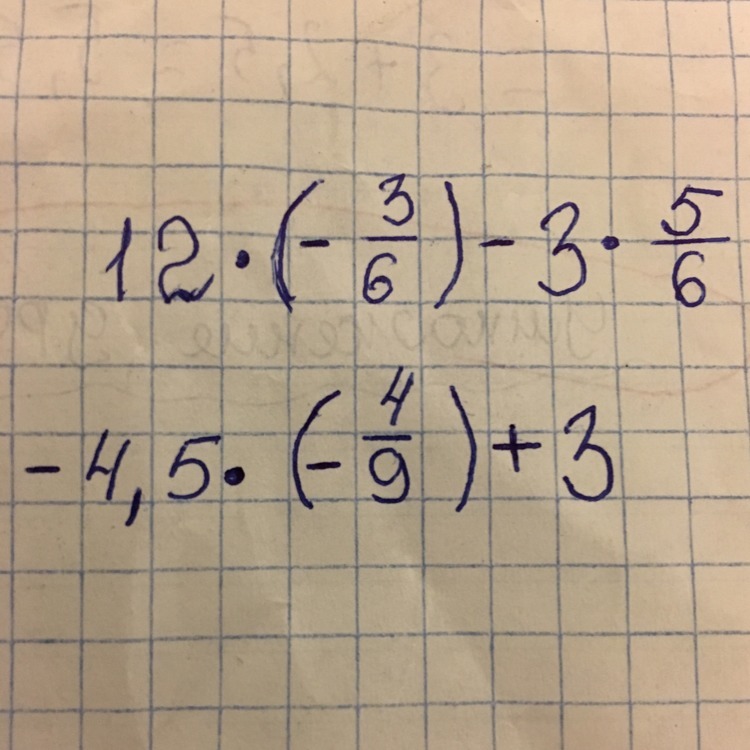 12 · (- 3/6) - 3 · 5/6
- 4,5 · (- 4/9) + 3